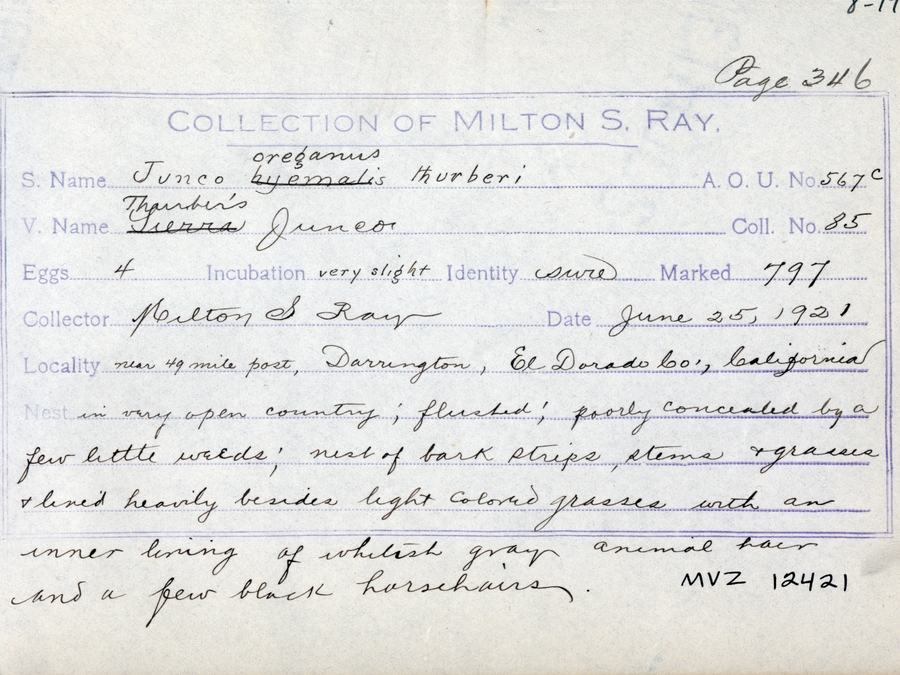 8-17
Page 346
COLLECTION OF MILTON S. RAY.
oreganus
S. Name Junco hyemalis thurberi A. O. U. No. 567c
Thurber's
V. Name Sierra Junco Coll. No. 85
Eggs 4 Incubation very slight Identity sure Marked 797
Collector Milton S Ray Date June 25, 1921
Locality near 49 mile post, Darrington, El Dorado Co., California
Nest in very open country; flushed; poorly concealed by a
few little weeds; nest of bark strips, stems & grasses
& lined heavily besides light colored grasses with an
inner lining of whitish gray animal hair
and a few black horsehairs.
MVZ 12421